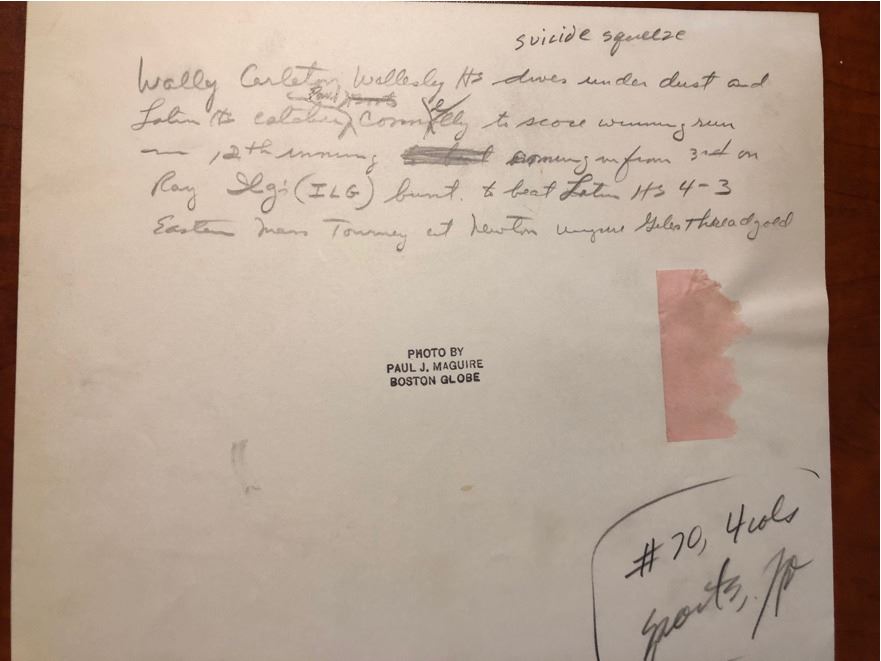 suicide squeeze
Wally Carleton, Wellesly HS dives under dust and
Paul
Latin HS catcher Connelly to score winning run
in 12th inning coming in from 3rd on
Ray Ilg's (ILG) bunt. to beat Latin HS 4-3
Eastern Mass Tourney at Newton umpire Giles Threadgold
PHOTO BY
PAUL J. MAGUIRE
BOSTON GLOBE
#70, 4 cols
sports,